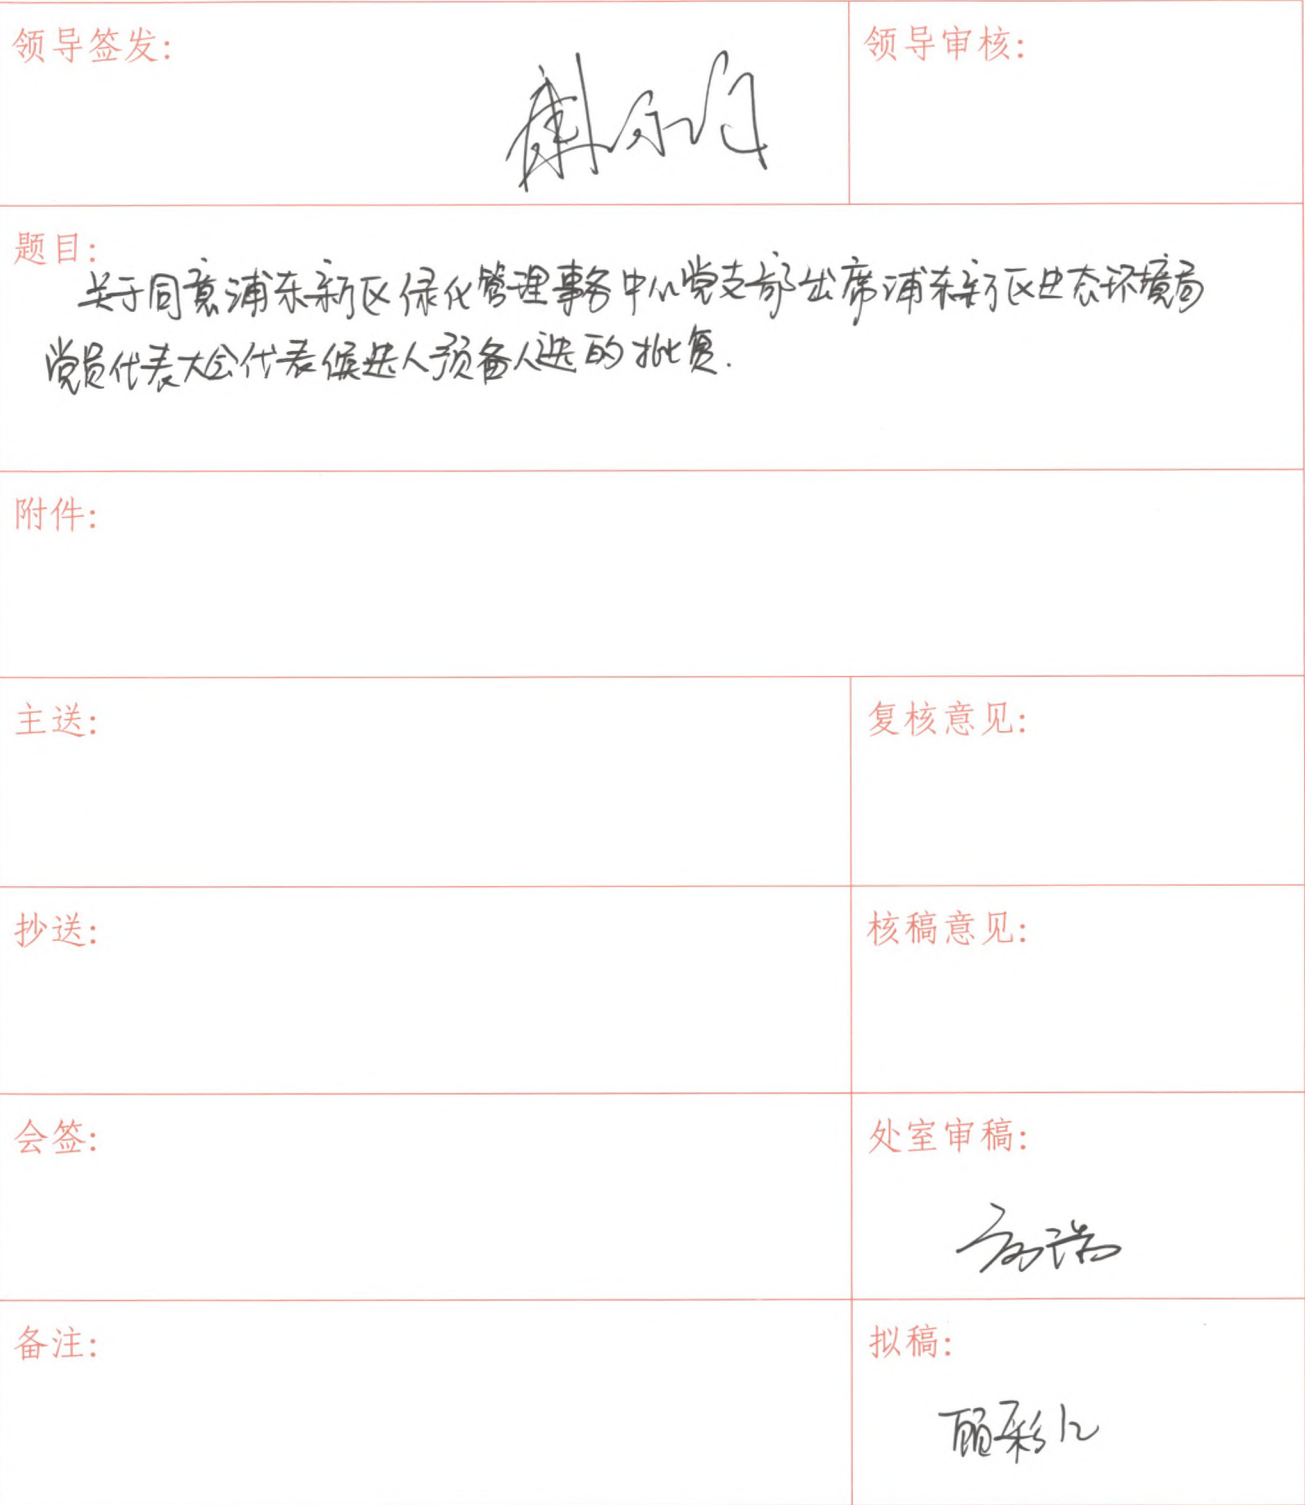 领导签发:
领导审核:
题目:
关于同意浦东新区绿化管理事务中心党支部出席浦东新区生态环境局
党员代表大会代表候选人预备人选的批复.
附件:
主送:
复核意见:
抄送:
核稿意见:
会签:
处室审稿:
备注:
拟稿:
顾彩